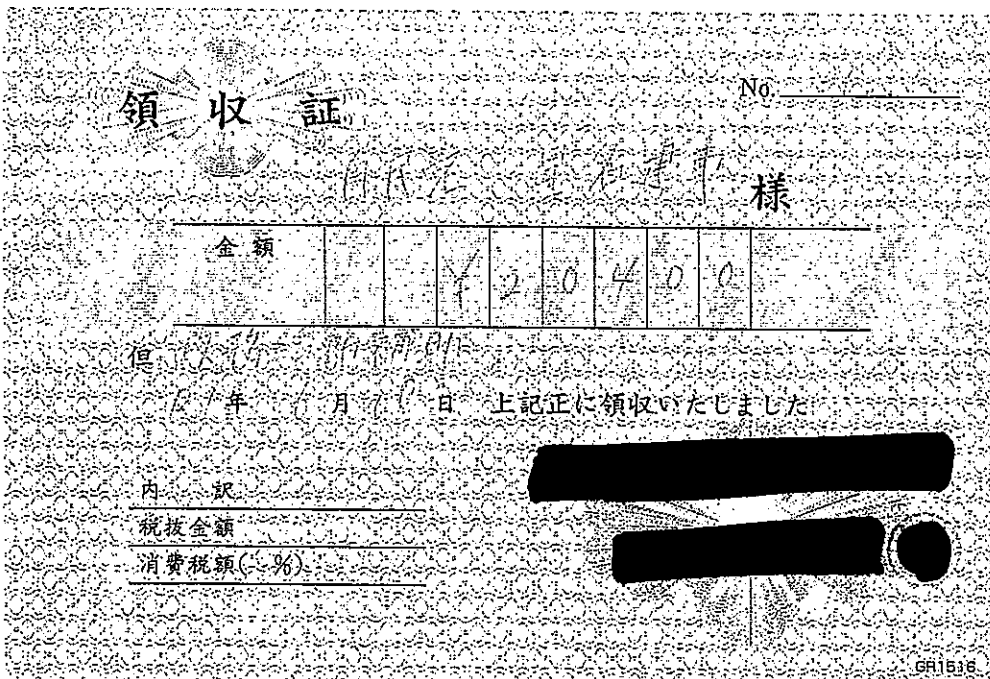 領収証
No.
様
金額 ¥20400
但
年 月 日 上記正に領収いたしました
内訳
税抜金額
消費税額( %)
GR1516